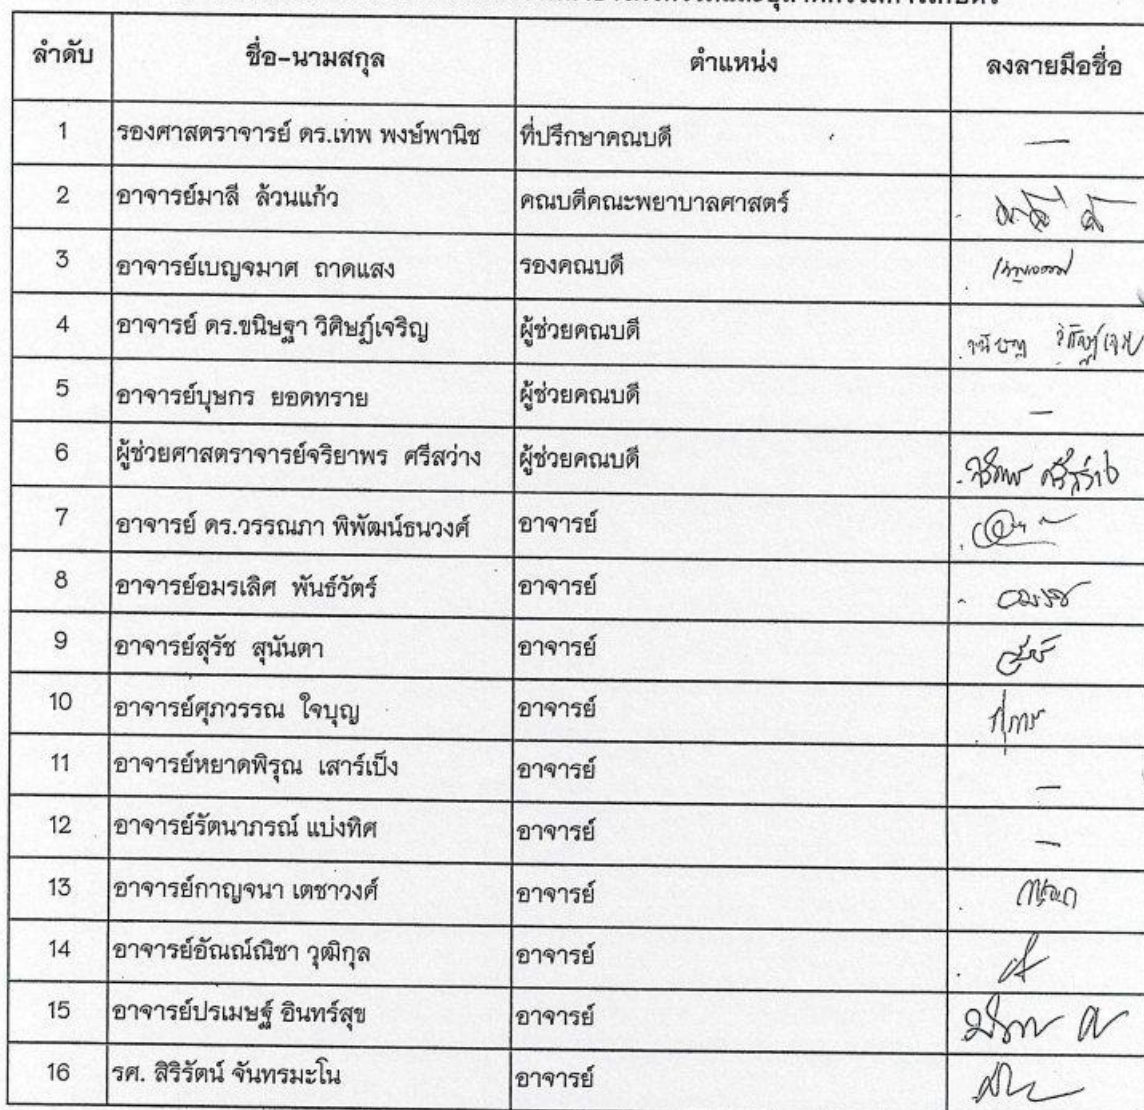 ลำดับ ชื่อ-นามสกุล ตำแหน่ง ลงลายมือชื่อ
1 รองศาสตราจารย์ ดร.เทพ พงษ์พานิช ที่ปรึกษาคณบดี —
2 อาจารย์มาลี ล้วนแก้ว คณบดีคณะพยาบาลศาสตร์
3 อาจารย์เบญจมาศ ถาดแสง รองคณบดี
4 อาจารย์ ดร.ขนิษฐา วิศิษฏ์เจริญ ผู้ช่วยคณบดี
5 อาจารย์บุษกร ยอดทราย ผู้ช่วยคณบดี —
6 ผู้ช่วยศาสตราจารย์จริยาพร ศรีสว่าง ผู้ช่วยคณบดี
7 อาจารย์ ดร.วรรณภา พิพัฒน์ธนวงศ์ อาจารย์
8 อาจารย์อมรเลิศ พันธ์วัตร์ อาจารย์
9 อาจารย์สุรัช สุนันตา อาจารย์
10 อาจารย์ศุภวรรณ ใจบุญ อาจารย์
11 อาจารย์หยาดพิรุณ เสาร์เป็ง อาจารย์ —
12 อาจารย์รัตนาภรณ์ แบ่งทิศ อาจารย์ —
13 อาจารย์กาญจนา เตชาวงศ์ อาจารย์
14 อาจารย์อัณณ์ณิชา วุฒิกุล อาจารย์
15 อาจารย์ปรเมษฐ์ อินทร์สุข อาจารย์
16 รศ. สิริรัตน์ จันทรมะโน อาจารย์